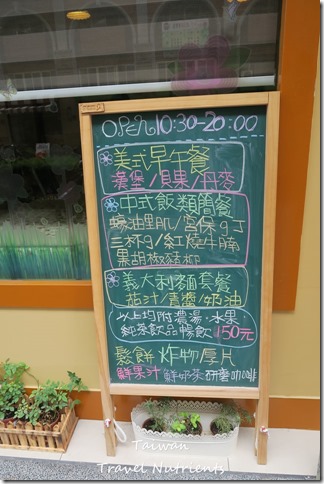 OPEN 10:30-20:00
美式早午餐
漢堡/貝果/丹麥
中式飯類簡餐
蠔油里肌/宮保g丁
三杯g/紅燒牛腩
黑胡椒豬柳
義大利麵套餐
茄汁/青醬/奶油
以上均附濃湯·水果
純茶飲品暢飲 150元
鬆餅 炸物 厚片
鮮果汁 鮮奶茶 研磨咖啡
Taiwan
Travel Nutrients